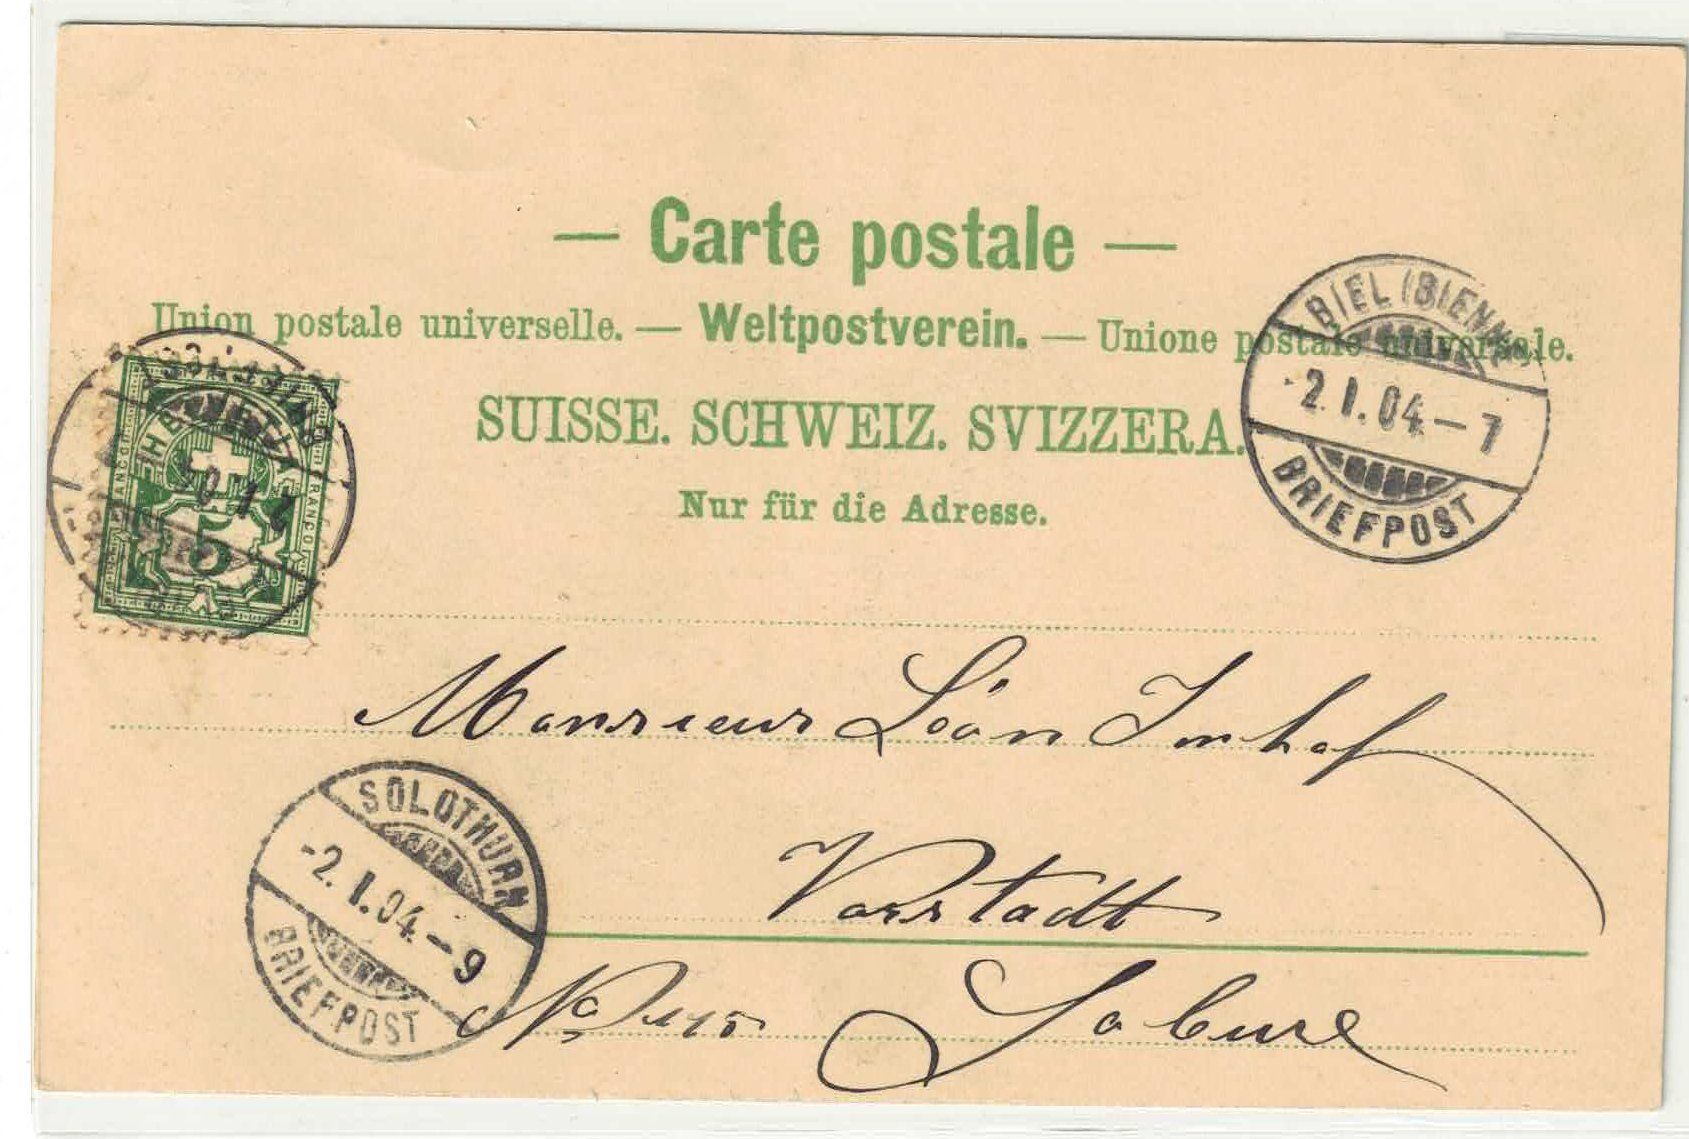 — Carte postale —
Union postale universelle. — Weltpostverein. — Unione postale universale.
SUISSE. SCHWEIZ. SVIZZERA.
Nur für die Adresse.
FRANCO
FRANCO
5
BIEL (BIENNE)
-2. I. 04. - 7
BRIEFPOST
Monsieur Léon Imhof
SOLOTHURN
-2. I. 04. - 9
BRIEFPOST
Vorstadt
Soleure